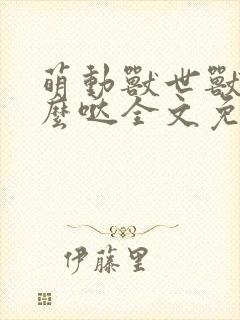 萌動獸世獸
麼噠全文免
伊藤里